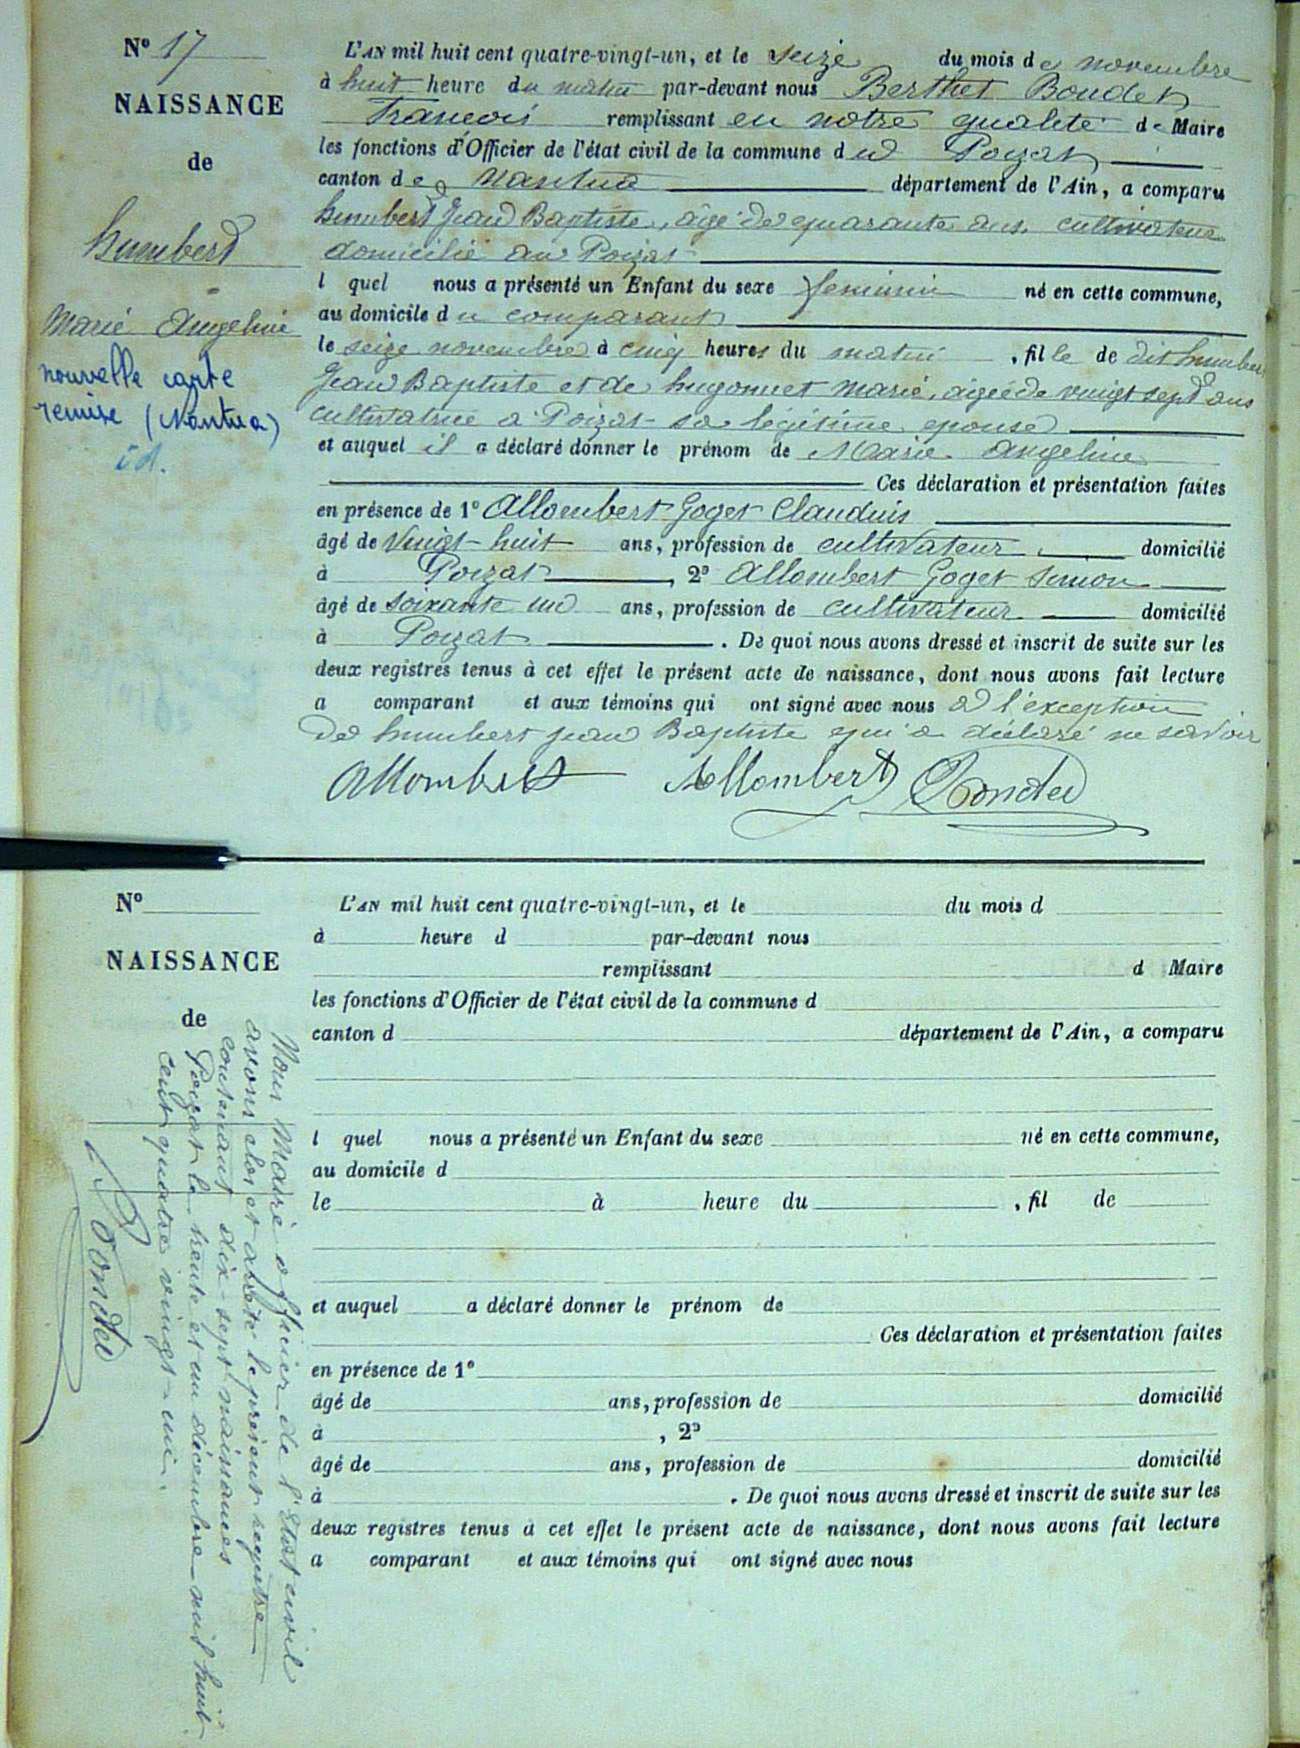 N° 17
NAISSANCE
de
humbert
Marie Angeline
nouvelle carte
remise (Nantua)
id.
L'AN mil huit cent quatre-vingt-un, et le seize du mois de novembre
à huit heure du matin par-devant nous Berthet Bondet
Francois remplissant en notre qualité de Maire
les fonctions d'Officier de l'état civil de la commune du Poizat
canton de Nantua département de l'Ain, a comparu
humbert Jean Baptiste, âgé de quarante ans, cultivateur
domicilié au Poizat
l quel nous a présenté un Enfant du sexe feminin né en cette commune,
au domicile du comparant
le seize novembre à cinq heures du matin, fille de dit humbert
Jean Baptiste et de hugonnet Marie, agée de vingt sept ans
cultivatrice a Poizat sa légitime epouse
et auquel il a déclaré donner le prénom de Marie Angeline
Ces déclaration et présentation faites
en présence de 1° Allombert Goget Claudius
âgé de Vingt-huit ans, profession de cultivateur domicilié
à Poizat, 2° Allombert Goget Simon
âgé de soixante un ans, profession de cultivateur domicilié
à Poizat. De quoi nous avons dressé et inscrit de suite sur les
deux registres tenus à cet effet le présent acte de naissance, dont nous avons fait lecture
a comparant et aux témoins qui ont signé avec nous à l'exception
de humbert jean Baptiste qui a déclaré ne savoir
Allombert Allombert Bondet
N°
NAISSANCE
de
L'AN mil huit cent quatre-vingt-un, et le du mois d
à heure d par-devant nous
remplissant d Maire
les fonctions d'Officier de l'état civil de la commune d
canton d département de l'Ain, a comparu
l quel nous a présenté un Enfant du sexe né en cette commune,
au domicile d
le à heure du , fil de
et auquel a déclaré donner le prénom de
Ces déclaration et présentation faites
en présence de 1°
âgé de ans, profession de domicilié
à , 2°
âgé de ans, profession de domicilié
à . De quoi nous avons dressé et inscrit de suite sur les
deux registres tenus à cet effet le présent acte de naissance, dont nous avons fait lecture
a comparant et aux témoins qui ont signé avec nous
Nous Maire officier de l'Etat civil
avons clos et arreté le présent registre
contenant dix-sept naissances
Poizat le trente et un décembre mil huit
cent quatre vingt-un.
Bondet